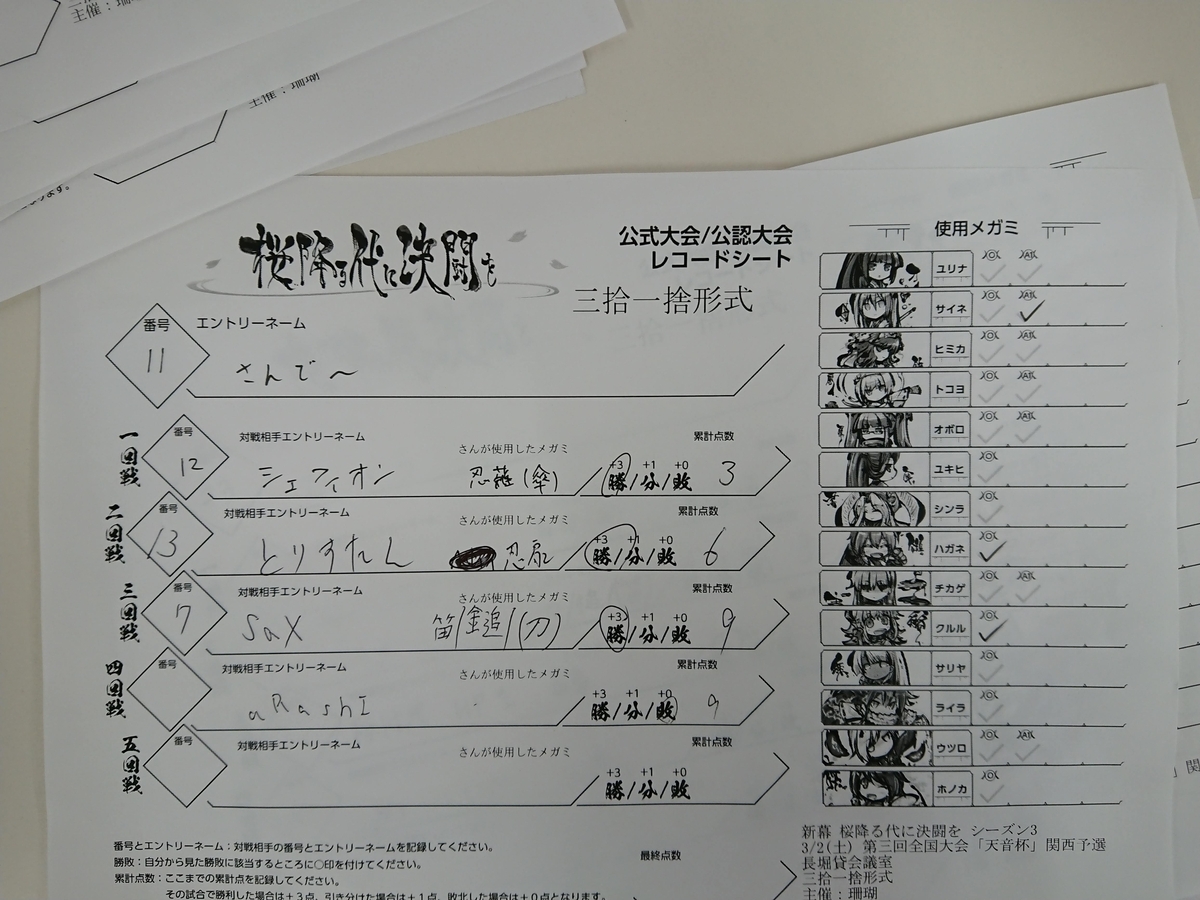 主催：珊瑚
ます。
桜降る代に決闘を
公式大会/公認大会
レコードシート
三拾一捨形式
使用メガミ
番号
11
エントリーネーム
さんで～
一回戦
番号
12
対戦相手エントリーネーム
シェフィオン
さんが使用したメガミ
忍薙(傘)
+3 +1 +0
勝/分/敗
累計点数
3
二回戦
番号
13
対戦相手エントリーネーム
とりすたん
さんが使用したメガミ
忍扇
+3 +1 +0
勝/分/敗
累計点数
6
三回戦
番号
7
対戦相手エントリーネーム
SaX
さんが使用したメガミ
笛/鎚/(刀)
+3 +1 +0
勝/分/敗
累計点数
9
四回戦
番号
対戦相手エントリーネーム
aRashI
さんが使用したメガミ
+3 +1 +0
勝/分/敗
累計点数
9
五回戦
番号
対戦相手エントリーネーム
さんが使用したメガミ
+3 +1 +0
勝/分/敗
累計点数
ユリナ O A1
サイネ O A1
ヒミカ O A1
トコヨ O A1
オボロ O A1
ユキヒ O
シンラ O
ハガネ O
チカゲ O A1
クルル O
サリヤ O
ライラ O
ウツロ O A1
ホノカ O
番号とエントリーネーム：対戦相手の番号とエントリーネームを記録してください。
勝敗：自分から見た勝敗に該当するところに○印を付けてください。
累計点数：ここまでの累計点を記録してください。
その試合で勝利した場合は＋３点、引き分けた場合は＋１点、敗北した場合は＋０点となります。
最終点数
新幕 桜降る代に決闘を シーズン3
3/2(土) 第三回全国大会「天音杯」関西予選
長堀貸会議室
三拾一捨形式
主催：珊瑚